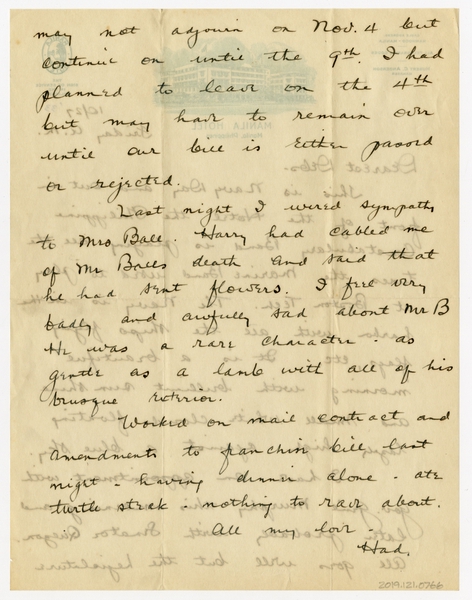 may not adjourn on Nov. 4 but
continue on until the 9th. I had
planned to leave on the 4th
but may have to remain over
until our bill is either passed
or rejected.
Last night I wired sympathy
to Mrs Ball. Harry had cabled me
of Mr Balls death and said that
he had sent flowers. I feel very
badly and awfully sad about Mr B
He was a rare character - as
gentle as a lamb with all of his
brusque exterior.
Worked on mail contract and
amendments to franchise bill last
night - having dinner alone - ate
turtle steak - nothing to rave about.
All my love -
Had.
2019.121.0766